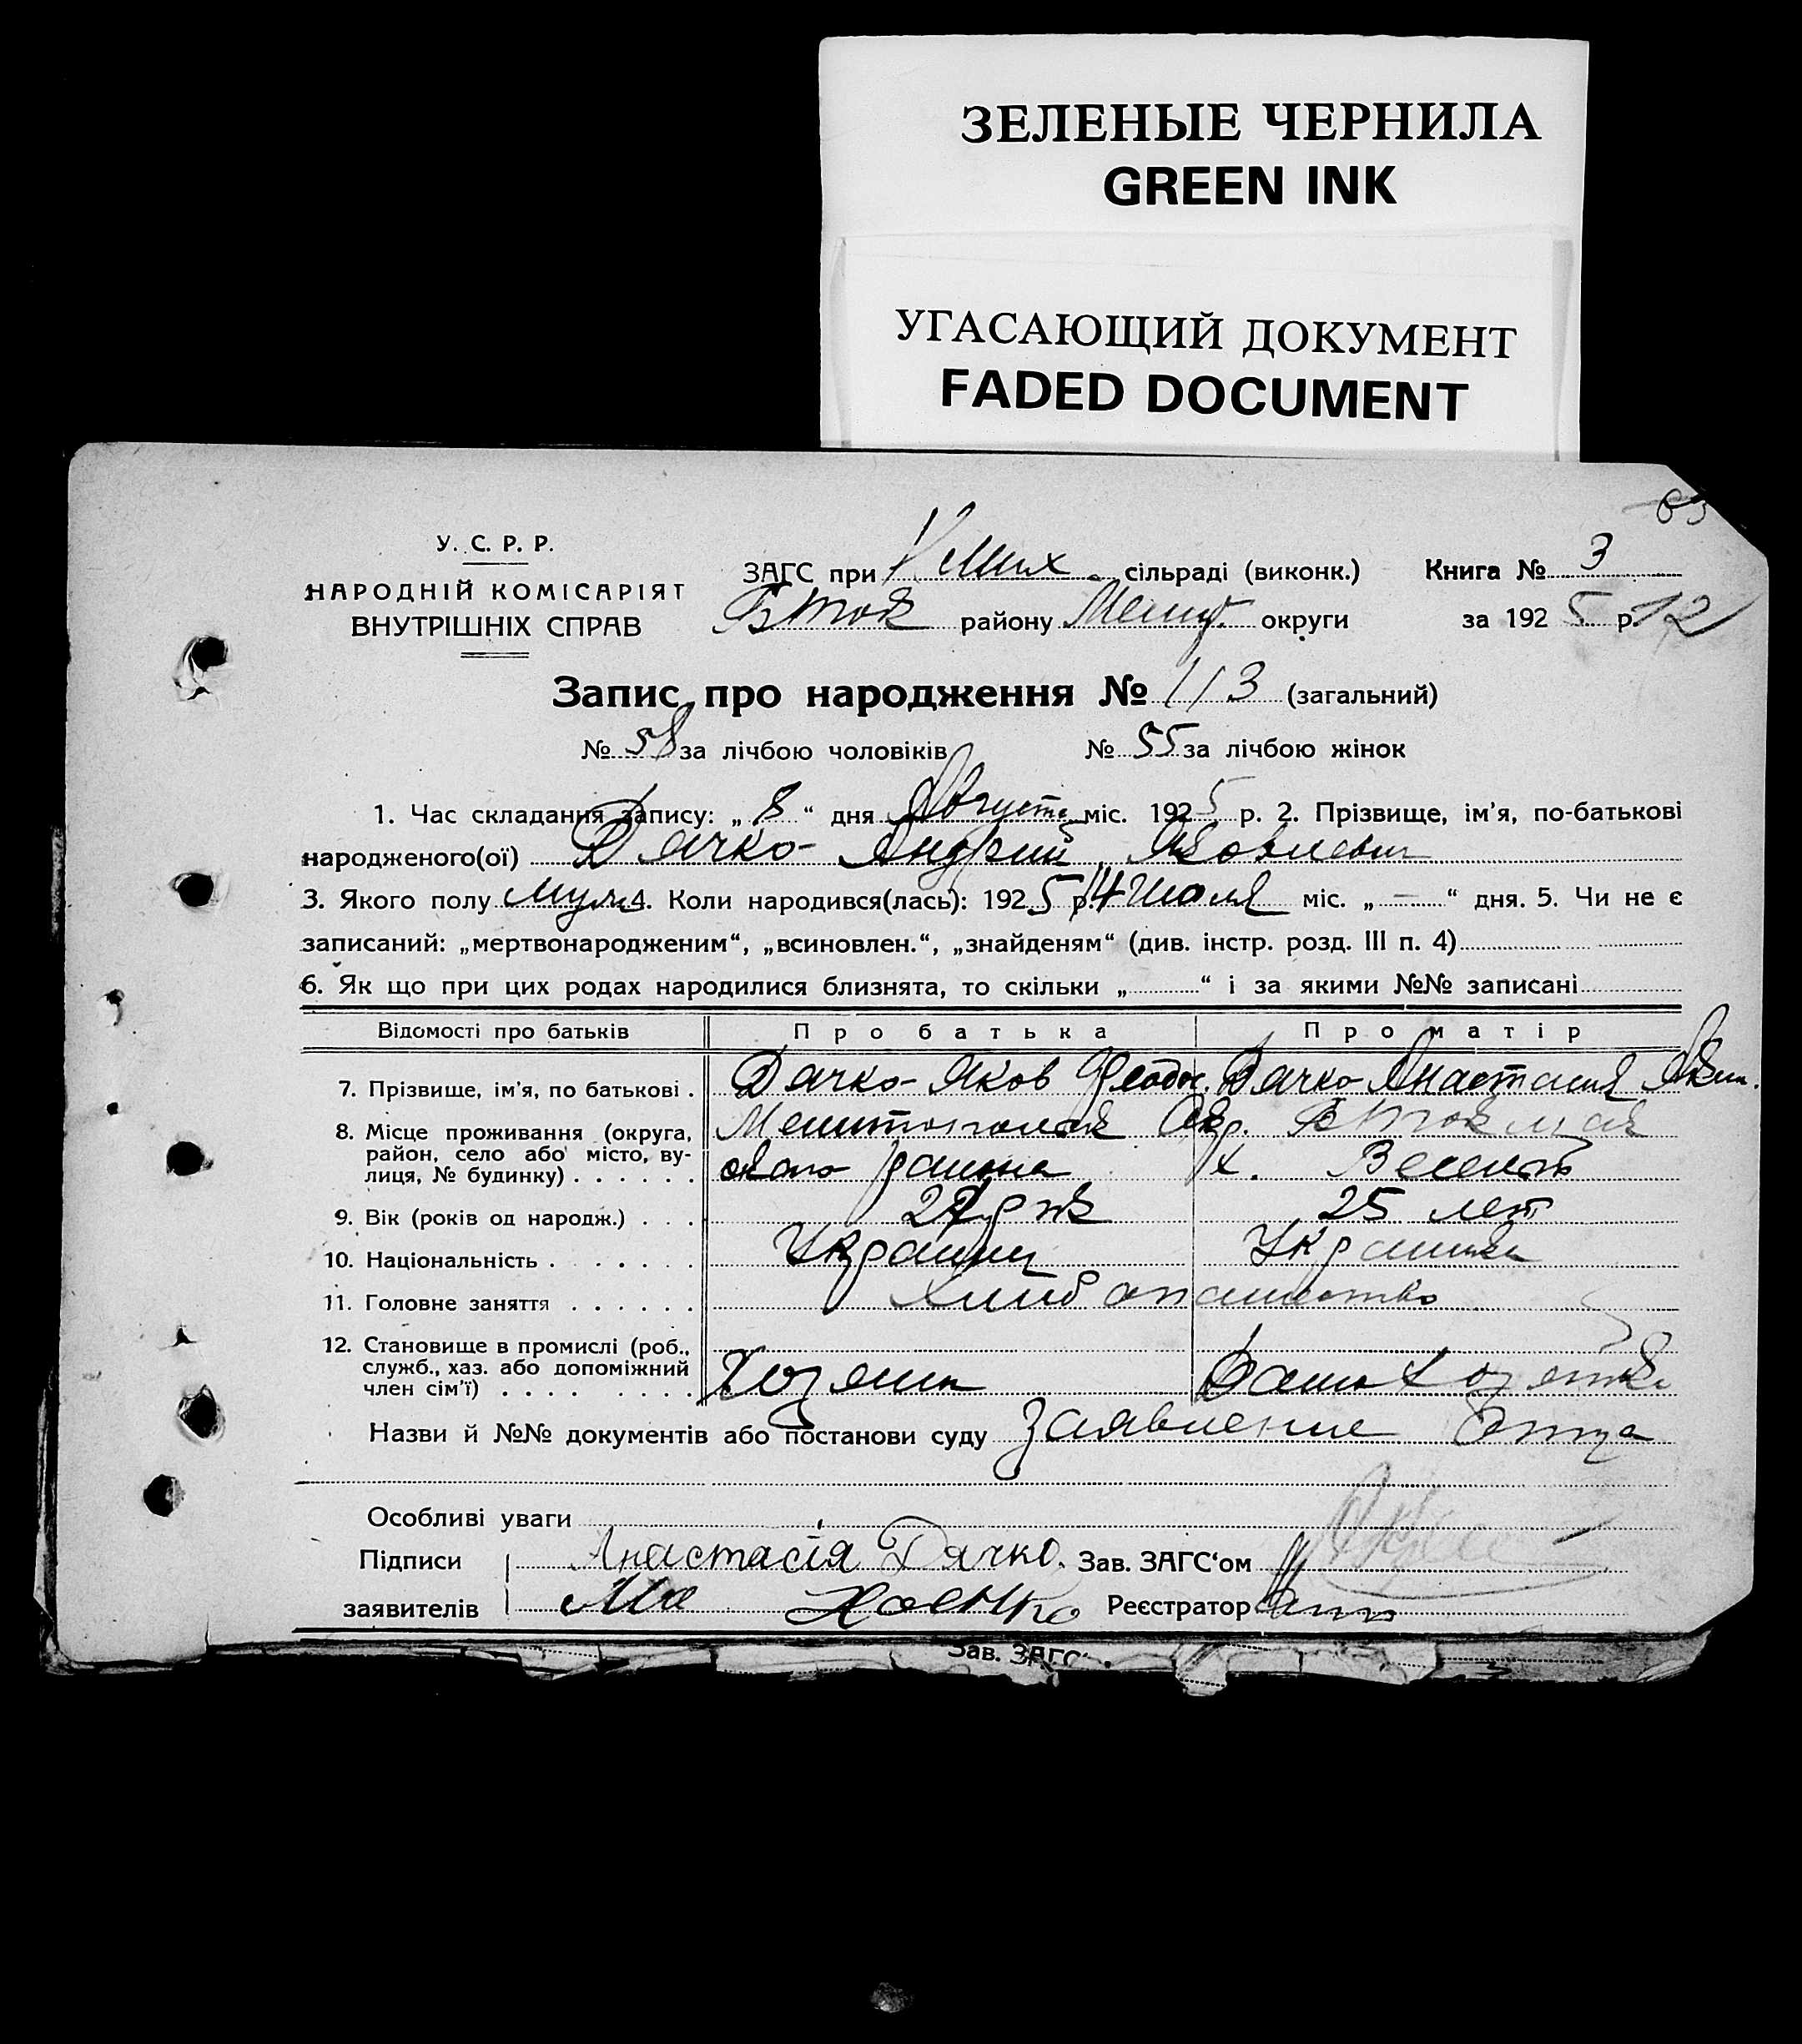 ЗЕЛЕНЫЕ ЧЕРНИЛА
GREEN INK
УГАСАЮЩИЙ ДОКУМЕНТ
FADED DOCUMENT
У. С. Р. Р.
НАРОДНІЙ КОМІСАРІЯТ
ВНУТРІШНІХ СПРАВ
ЗАГС при Мих. сільраді (виконк.) Книга № 3
Бток району Мелит. округи за 1925 р. 12
Запис про народження № 113 (загальний)
№ 58 за лічбою чоловіків № 55 за лічбою жінок
1. Час складання запису: „ 8 “ дня Августа міс. 1925 р. 2. Прізвище, ім'я, по-батькові
народженого(ої) Дячко Андрий Яковлевич
3. Якого полу муж 4. Коли народився(лась): 1925 р. 14 Июля міс. „ — “ дня. 5. Чи не є
записаний: „мертвонародженим“, „всиновлен.“, „знайденям“ (див. інстр. розд. III п. 4)
6. Як що при цих родах народилися близнята, то скільки „ “ і за якими №№ записані
Відомості про батьків Про батька Про матір
7. Прізвище, ім'я, по батькові . Дячко Яков Феодос. Дячко Анастасия
8. Місце проживання (округа, Мелитопольск Окр. Б Токмак
район, село або місто, ву- ского района х. Веселый
лиця, № будинку)
9. Вік (років од народж.) 25 лет
10. Національність Украинец Украинка
11. Головне заняття Хлибопашество
12. Становище в промислі (роб.,
служб., хаз. або допоміжний Хозяин Домохозяйка
член сім'ї)
Назви й №№ документів або постанови суду Заявление Отца
Особливі уваги
Підписи Анастасія Дячко. Зав. ЗАГС'ом
заявителів Реєстратор
Зав. ЗАГС'